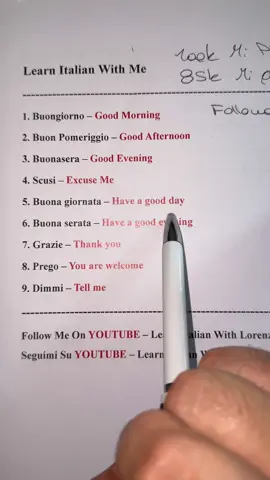 100k Mi
85k Mi
Learn Italian With Me
Follow
1. Buongiorno – Good Morning
2. Buon Pomeriggio – Good Afternoon
3. Buonasera – Good Evening
4. Scusi – Excuse Me
5. Buona giornata – Have a good day
6. Buona serata – Have a good evening
7. Grazie – Thank you
8. Prego – You are welcome
9. Dimmi – Tell me
Follow Me On YOUTUBE – Italian With Lorenz
Seguimi Su YOUTUBE – Learn